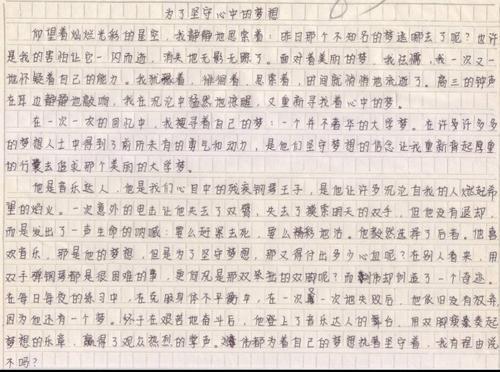 为了坚守心中的梦想
仰望着灿烂光彩的星空，我静静地思索着：昨日那个不知名的梦遗哪去了呢？也许
是我的害怕让它一闪而逝，消失地无影无踪了。面对着美丽的梦，我怯懦，我一次又一
地怀疑着自己的能力。我犹疑着，徘徊着，思索着，时间就悄悄地流逝了。高三的钟声
在耳边静静地敲响，我在沉沦中猛然地惊醒，又重新寻找着心中的梦。
在一次一次的回忆中，我搜寻着自己的梦：一个并不奢华的大学梦。在许许多多
的梦想人士中得到了前所未有的勇气和动力，是他们坚守梦想的信念让我重新背起厚重
的行囊去追求那个美丽的大学梦。
他是音乐达人，他是我们心目中的残疾钢琴王子，是他让许多沉沦自我的人燃起希
望的焰火。一次意外的电击让他失去了双臂，失去了摸索明天的双手，但他没有退却
而是发出了一声生命的呐喊，要么赶紧去死，要么精彩地活。他毅然选择了后者。他喜
欢音乐，那是他的梦想，但是为了坚守梦想，那又得付出多少心血呢？在别人看来，用
双手弹钢琴都是很困难的事，更何况是那双笨拙的双脚呢？而刘伟却创造了一个奇迹。
在每日每夜的练习中，在克服身体不平衡中，在一次又一次地失败后，他依旧没有放弃
因为他还有一个梦。终于在艰苦地奋斗后，他登上了音乐达人的舞台，用双脚演奏起
梦想的乐章，赢得了观众热烈的掌声。刘伟都为着自己的梦想执着坚守着，我有理由说
不吗？